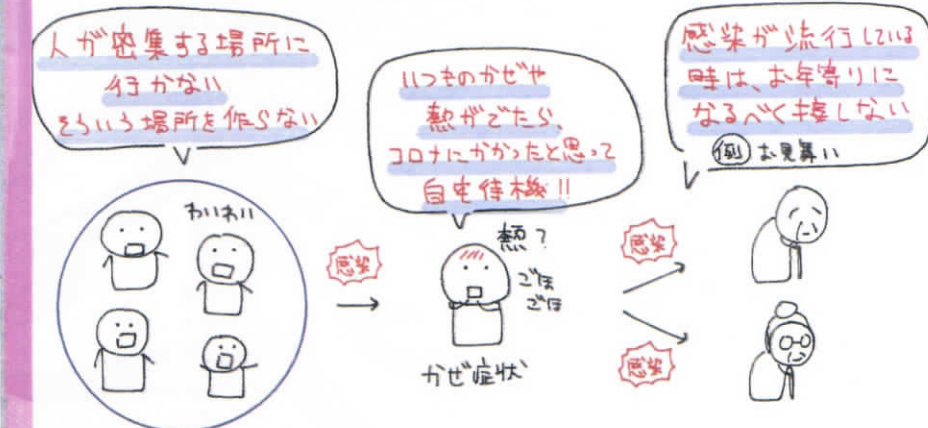 人が密集する場所に
行かない
そういう場所を作らない
わいわい
感染
いつものかぜや
熱がでたら、
コロナにかかったと思って
自宅待機!!
熱?
ごほ
ごほ
かぜ症状
感染が流行している
時は、お年寄りに
なるべく接しない
例 お見舞い
感染
感染